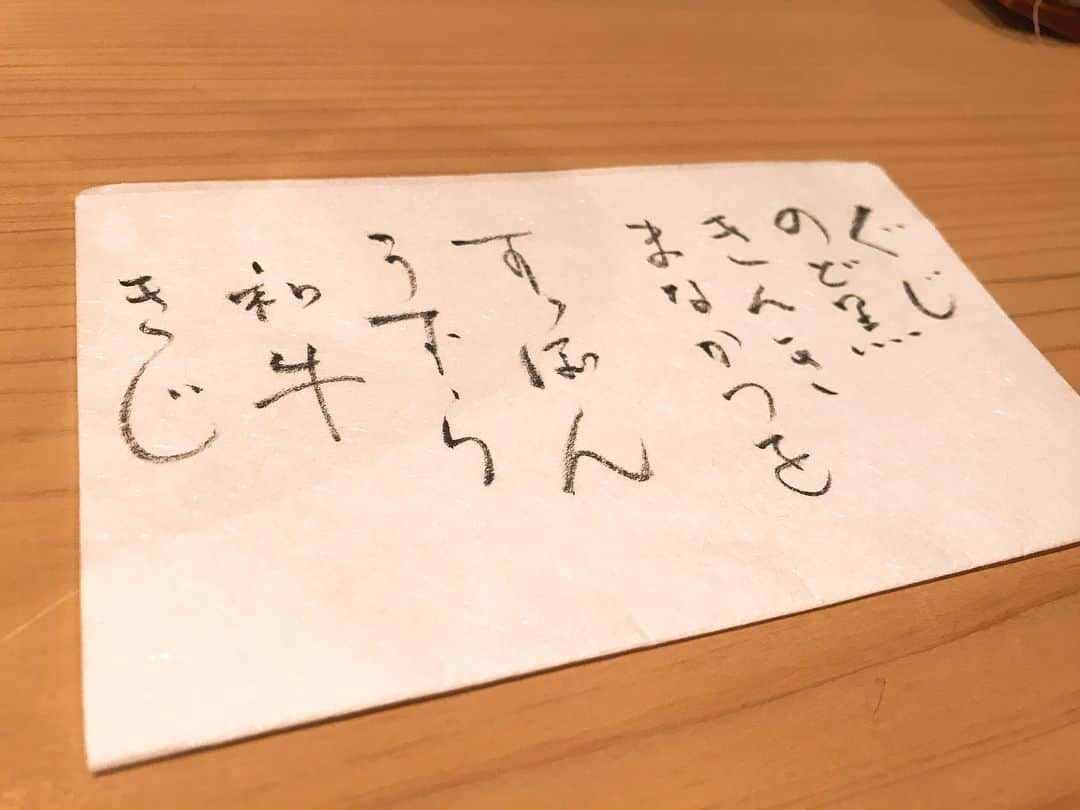 ぐじ
のど黒
きんき
まなかつを
すっぽん
うずら
和牛
きじ